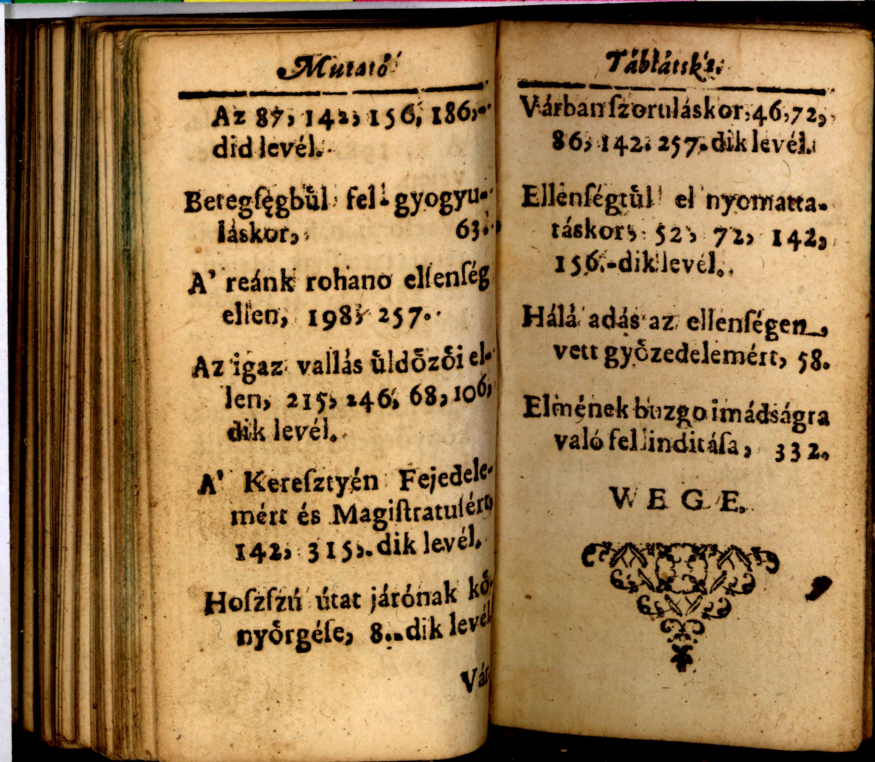 Mutató
Az 87, 142, 156, 186,
did levél.
Betegſégbűl fel gyogyu-
láskor, 63.
A' reánk rohano ellenſég
ellen, 198, 257.
Az igaz vallás űldőzői el-
len, 215, 246, 68, 106,
dik levél.
A' Kereſztyén Fejedele-
mért és Magiſtratuſért,
142, 315. dik levél.
Hoſzſzú útat járónak kő-
nyőrgéſe, 8. dik levél
Vár
Táblátska.
Várban ſzoruláskor, 46, 72,
86, 142. 257. dik levél.
Ellenſégtűl el nyomatta-
táskor, 52, 72, 142,
156.-dik levél.
Hálá adás az ellenſégen
vett győzedelemért, 58.
Elmének buzgo imádságra
való fel indítáſa, 332.
WEGE.